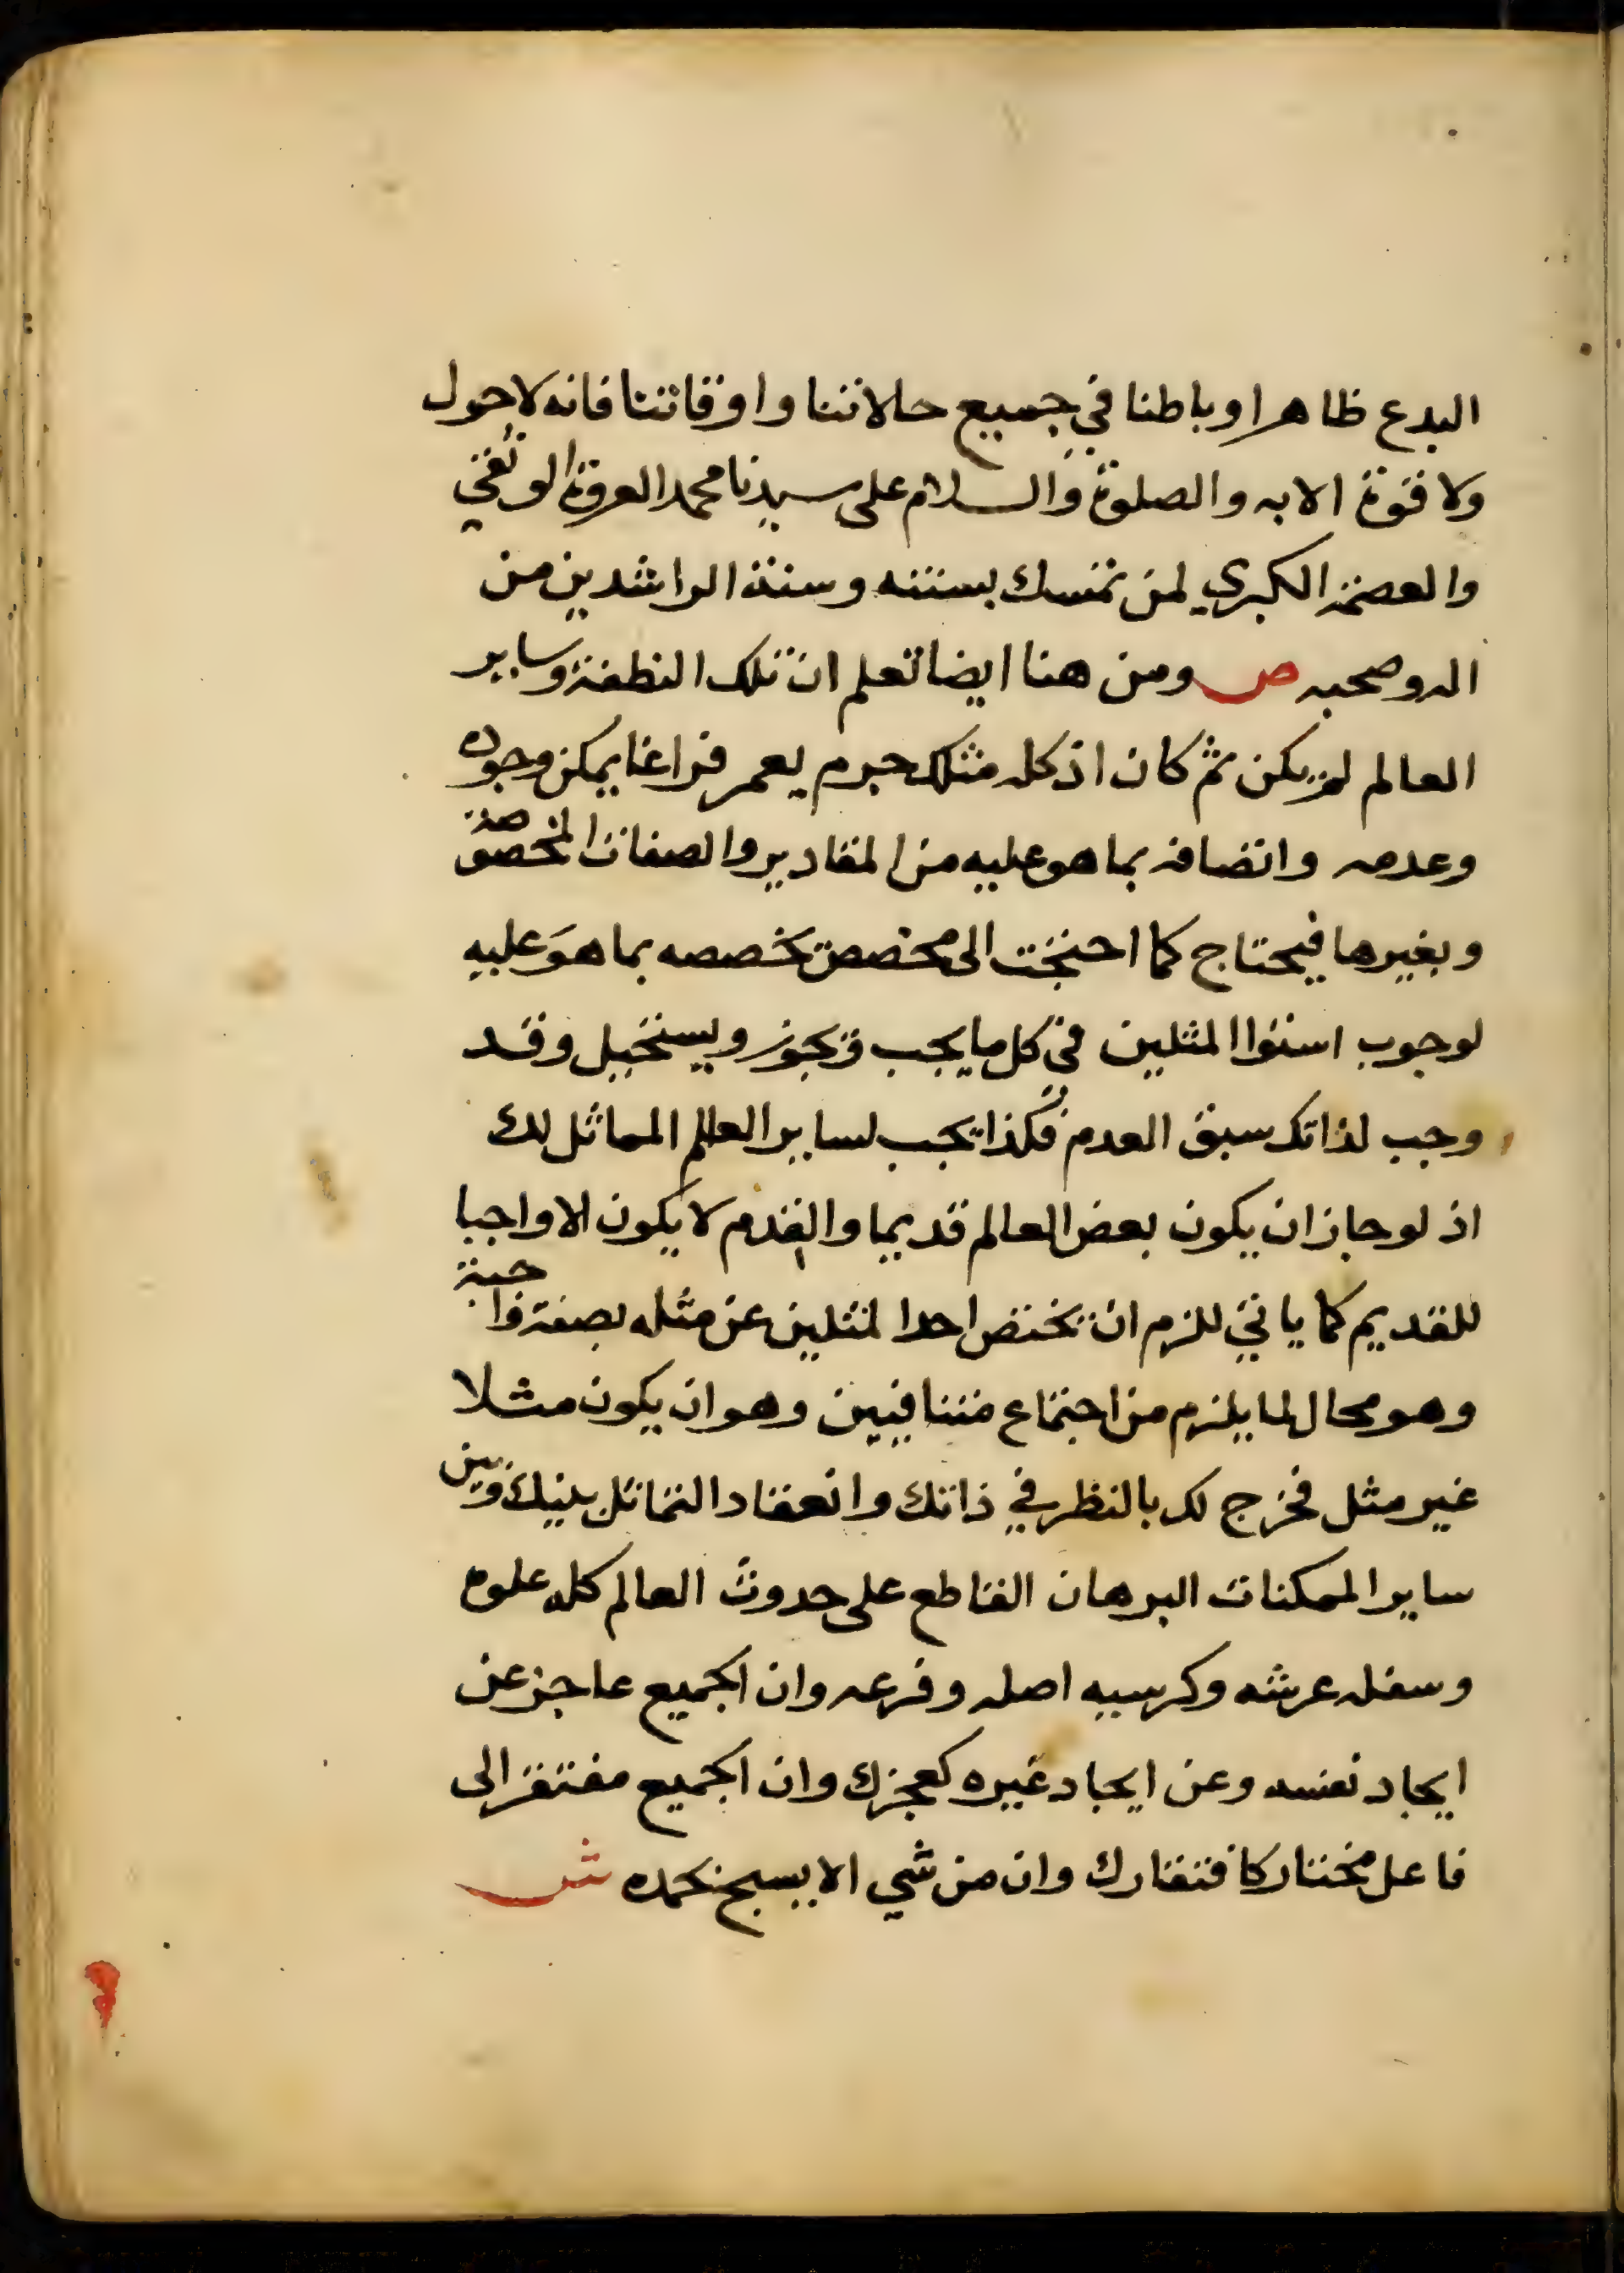 البدع ظاهرا وباطنا في جميع حالاتنا واوقاتنا فانه لا حول
ولا قوة الا به والصلوة والسلام على سيدنا محمد العروة الوثقي
والعصمة الكبري لمن تمسك بسنته وسنة الراشدين من
اله وصحبه ص ومن هنا ايضا تعلم ان تلك النطفة وساير
العالم لم يكن ثم كان اذ كله مثلك جرم يعمر فراغا يمكن وجوده
وعدمه واتصافه بما هو عليه من المقادير والصفات المخصوصة
وبغيرها فيحتاج كما احتجت الى مخصص يخصصه بما هو عليه
لوجوب استوا المثلين في كل ما يجب ويجوز ويستحيل وقد
وجب لذاتك سبق العدم فكذا يجب لساير العالم المماثل لك
اذ لو جاز ان يكون بعض العالم قديما والقدم لا يكون الا واجبا
للقديم كما ياتي للزم ان يختص احد المثلين عن مثله بصفة واجبة
وهو محال لما يلزم من اجتماع متنافيين وهو ان يكون مثلا
غير مثل فخرج لك بالنظر في ذاتك وانعقاد التماثل بينك وبين
ساير الممكنات البرهان القاطع على حدوث العالم كله علوه
وسفله عرشه وكرسيه اصله وفرعه وان الجميع عاجز عن
ايجاد نفسه وعن ايجاد غيره كعجزك وان الجميع مفتقر الى
فاعل مختار كافتقارك وان من شي الا يسبح بحمده ش